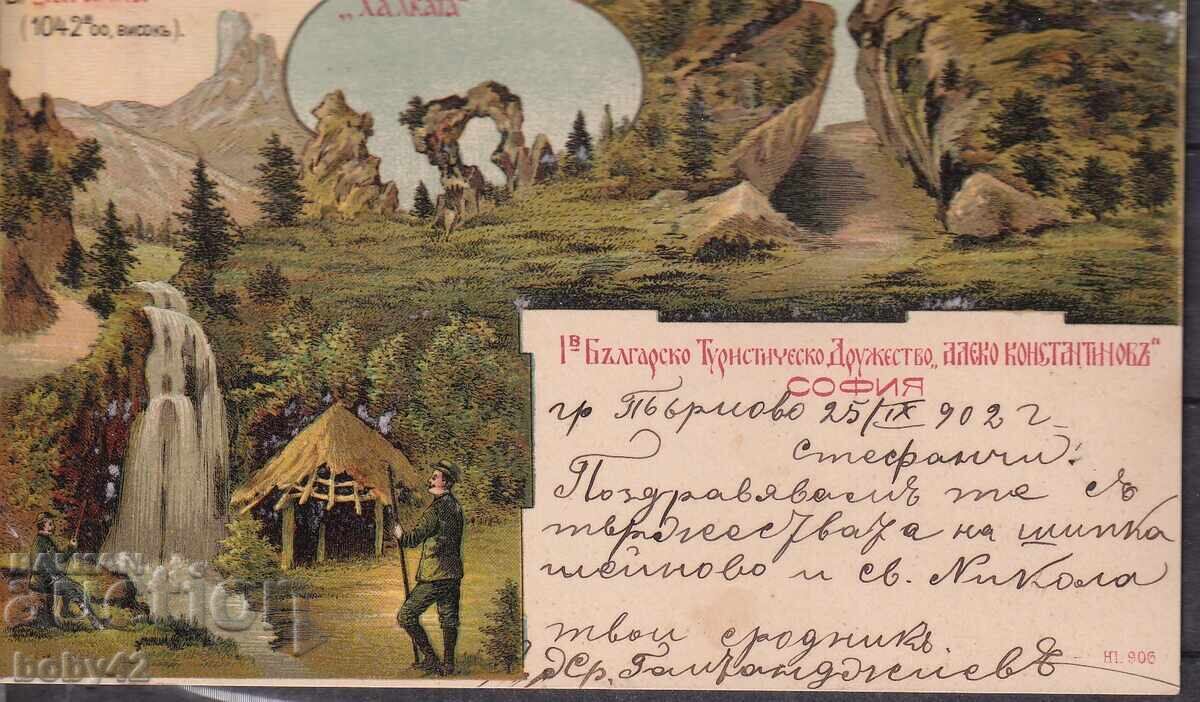 (1042 воо, високъ).
„Халката"
Iв Българско Туристическо Дружество „Алеко Константиновъ"
СОФИЯ
гр Търново 25/IX 902 г
Стефанчи!
Поздравявамъ те съ
тържествата на шипка
шейново и св. Никола
твои сродникъ
Хр.
Ні. 906
BALKAN
auction
boby42